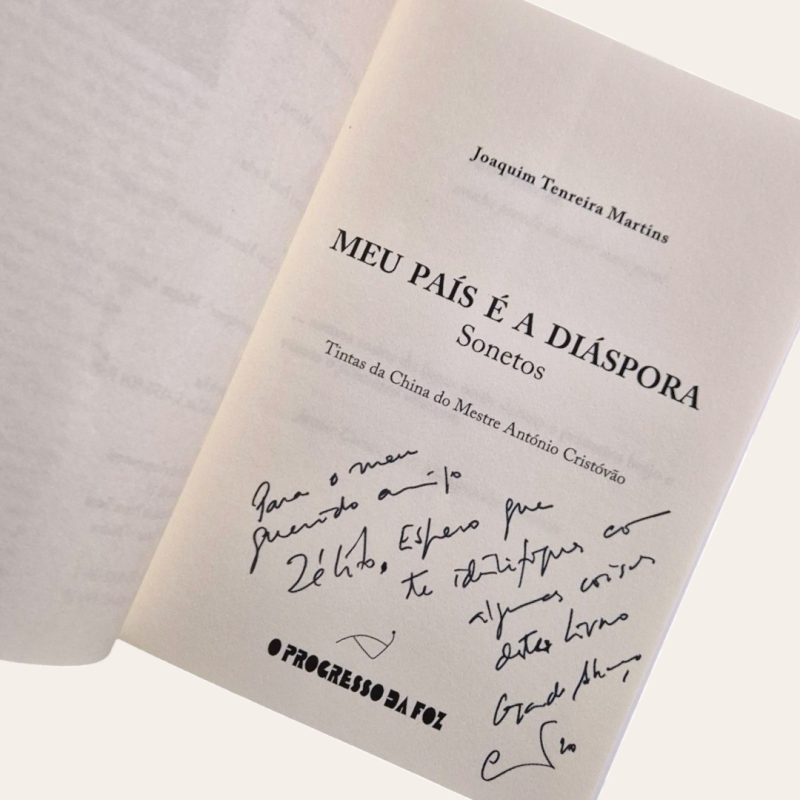 Joaquim Tenreira Martins
MEU PAÍS É A DIÁSPORA
Sonetos
Tintas da China do Mestre António Cristóvão
Para o meu
querido amigo
Zélito, Espero que
te identifiques co
algumas coisas
deste livro
Grande Abraço
O PROGRESSO DA FOZ